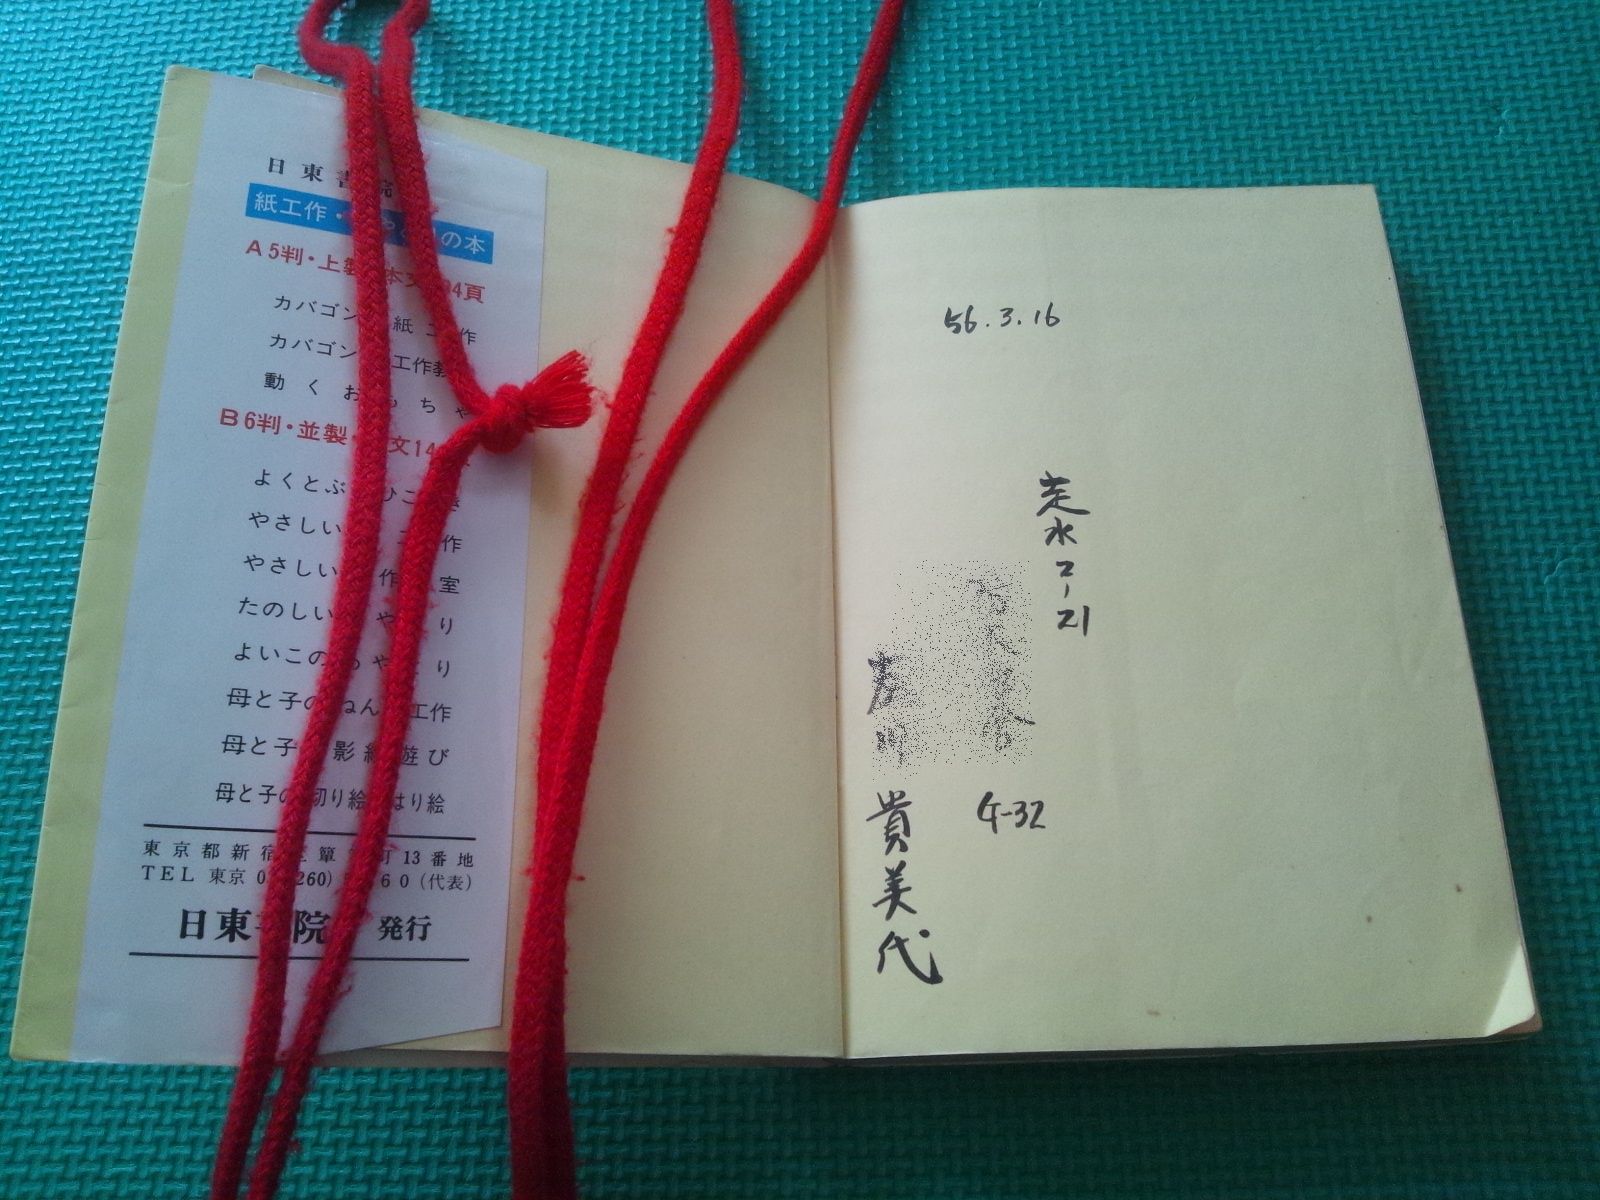 日東書院
紙工作・あやとりの本
A5判・上製・本文 頁
カバゴンの紙工作
カバゴンの工作教
動くおもちゃ
B6判・並製・本文14
よくとぶ ひこ き
やさしい 工作
やさしい 作 室
たのしいあやとり
よいこのあやとり
母と子のねんど工作
母と子の影絵遊び
母と子の切り絵はり絵
東京都新宿区箪笥町13番地
TEL 東京 0 (260) 60(代表)
日東書院 発行
56.3.16
走水2-21
4-32
貴美代